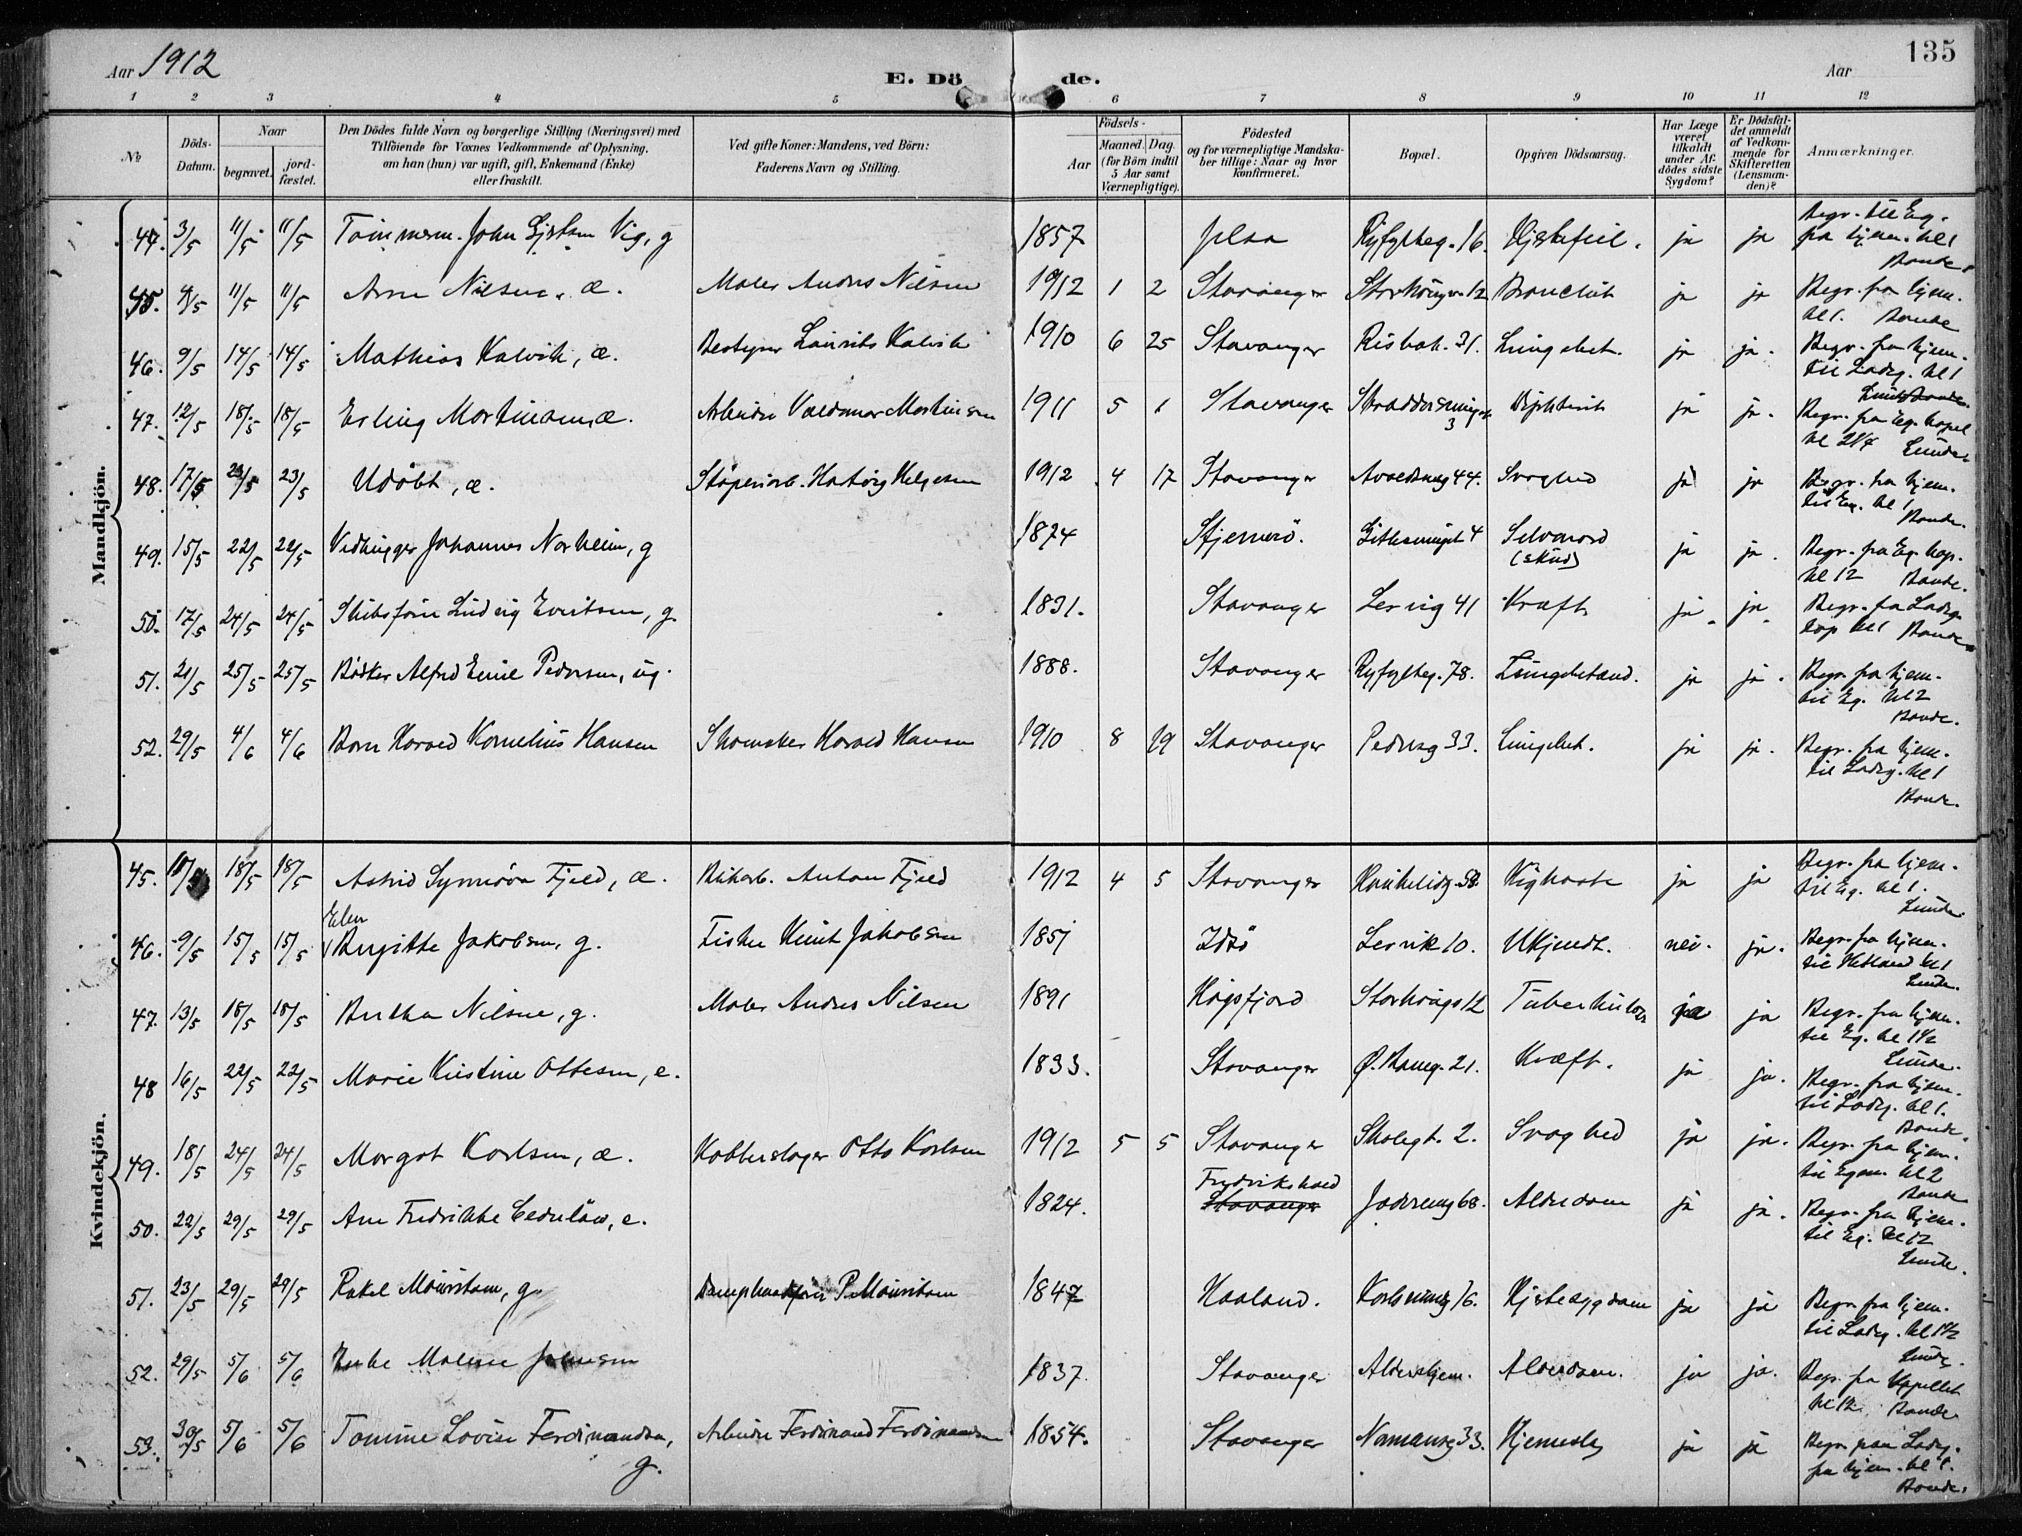 Aar 1912
E. Döde.
Aar
135
1 2 3 4 5 6 7 8 9 10 11 12
No
Döds-Datum.
Naar
begravet.
jord-fæstet.
Den Dödes fulde Navn og borgerlige Stilling (Næringsvei) med
Tilföiende for Voxnes Vedkommende af Oplysning,
om han (hun) var ugift, gift, Enkemand (Enke)
eller fraskilt.
Ved gifte Koner: Mandens, ved Börn:
Faderens Navn og Stilling.
Födsels-
Aar
Maaned. Dag.
(for Börn indtil
5 Aar samt
Værnepligtige).
Födested
og for værnepligtige Mandska-
ber tillige: Naar og hvor
Konfirmeret.
Bopæl.
Opgiven Dödsaarsag.
Har Læge
været
tilkaldt
under Af-
dödes sidste
Sygdom?
Er Dödsfal-
det anmeldt
af Vedkom-
mende for
Skifteretten
(Lensman-
den)?
Anmærkninger.
Mandkjön.
44. 3/5 11/5 11/5 Tömmerm. John Vig, g 1857 Jelsa Ryfylkeg. 16. Hjertefeil. ja ja Begr. til Eg. fra hjem. kl 1 Bonde.
45. 4/5 11/5 11/5 Arne Nilsen, æ. Maler Andres Nilsen 1912 1 2 Stavanger Storhougsv. 12 Bronchit ja ja Begr. fra hjem. kl 1. Bonde
46. 9/5 14/5 14/5 Mathias Kalvik, æ. Bestyrer Laurits Kalvik 1910 6 25 Stavanger Risbak. 31. Lungebet. ja ja. Begr. fra hjem. til Ladeg. kl 1
47. 12/5 18/5 18/5 Erling Martinsen, æ. Arbeider Valdemar Martinsen 1911 5 1 Stavanger 3 Diphterit ja ja. Begr. fra Eg. kapel kl 2 1/4 Lunde.
48. 17/5 23/5 23/5 Udöbt, æ. Støperiarb. Hartvig Helgesen 1912 4 17 Stavanger 44. Svaghed ja ja Begr. fra hjem. til Eg. kl 1 Bonde.
49. 15/5 22/5 22/5 Vedhugger Johannes Norheim, g 1874 Stjernerö. 4 Selvmord (skud) ja ja. Begr. fra Eg. kap. kl 12 Bonde.
50. 17/5 24/5 24/5 Skibsförer Ludvig Evertsen, g. 1831. Stavanger Lervig 41 Kræft ja. ja. Begr. fra Ladeg. kap kl 1 Bonde
51. 21/5 25/5 25/5 Bödker Alfred Emil Pedersen, ug. 1888. Stavanger Ryfylkeg. 78. Lungebetænd. ja ja. Begr. fra hjem. til Eg. kl 2 Bonde.
52. 29/5 4/6 4/6 Barn Harald Kornelius Hansen Skomaker Harald Hansen 1910 8 19 Stavanger Pedersg 33. Lungebet. ja ja. Begr. fra hjem. til Ladeg. kl 1 Bonde.
Kvindekjön.
45. 18/5 18/5 Astrid Synnöva Fjeld, æ. Anton Fjeld 1912 4 5 Stavanger Kighoste ja ja Begr. fra hjem. til Eg. kl 1. Lunde
46. 9/5 15/5 15/5 Elen Birgitte Jakobsen, g. Fisker Knut Jakobsen 1851 Idsö Lervik 10. Ukjendt. nei. ja. Begr. fra hjem. til Hetland kl 1 Lunde.
47. 13/5 18/5 18/5 Bertha Nilsen, g. Maler Andres Nilsen 1891 Högsfjord Storhougs 12 Tuberkulose ja ja Begr. fra hjem. til Eg. kl 1 1/2 Lunde.
48 16/5 22/5 22/5 Marie Kristine Ottesen, e. 1833. Stavanger Ø. 21. Kræft. ja ja. Begr. fra hjem. til Ladeg. kl 1. Bonde.
49. 18/5 24/5 24/5 Margot Karlsen, æ. Kobberslager Otto Karlsen 1912 5 5 Stavanger Skolegt. 2. Svaghed ja ja. Begr. fra hjem. til Egen. kl 2 Bonde
50. 22/5 29/5 29/5 Ane Fredrikke Cederlöw, e. 1824. Fredrikshald Stavanger Jadersveg 68. Alderdom ja ja. Begr. fra hjem. til Eg. kl 12 Lunde.
51. 23/5 29/5 29/5 Rakel Mauritsen, g. P. Mauritsen 1847 Haaland. Karlsmindeg 16. Hjertesygdom ja ja Begr. fra hjem. til Ladeg. kl 1 1/2 Lunde.
52. 29/5 5/6 5/6 Enke Malene Johnsen 1837. Stavanger Aldershjem. Alderdom. ja ja. Begr. fra Kapellet kl 12 Bonde
53. 30/5 5/6 5/6 Tomine Lovise Ferdinandsen, g. Arbeider Ferdinand Ferdinandsen 1854. Stavanger Normansg 33. Hjerneslag ja ja Begr. paa Ladeg. fra hjem. kl 1. Bonde.